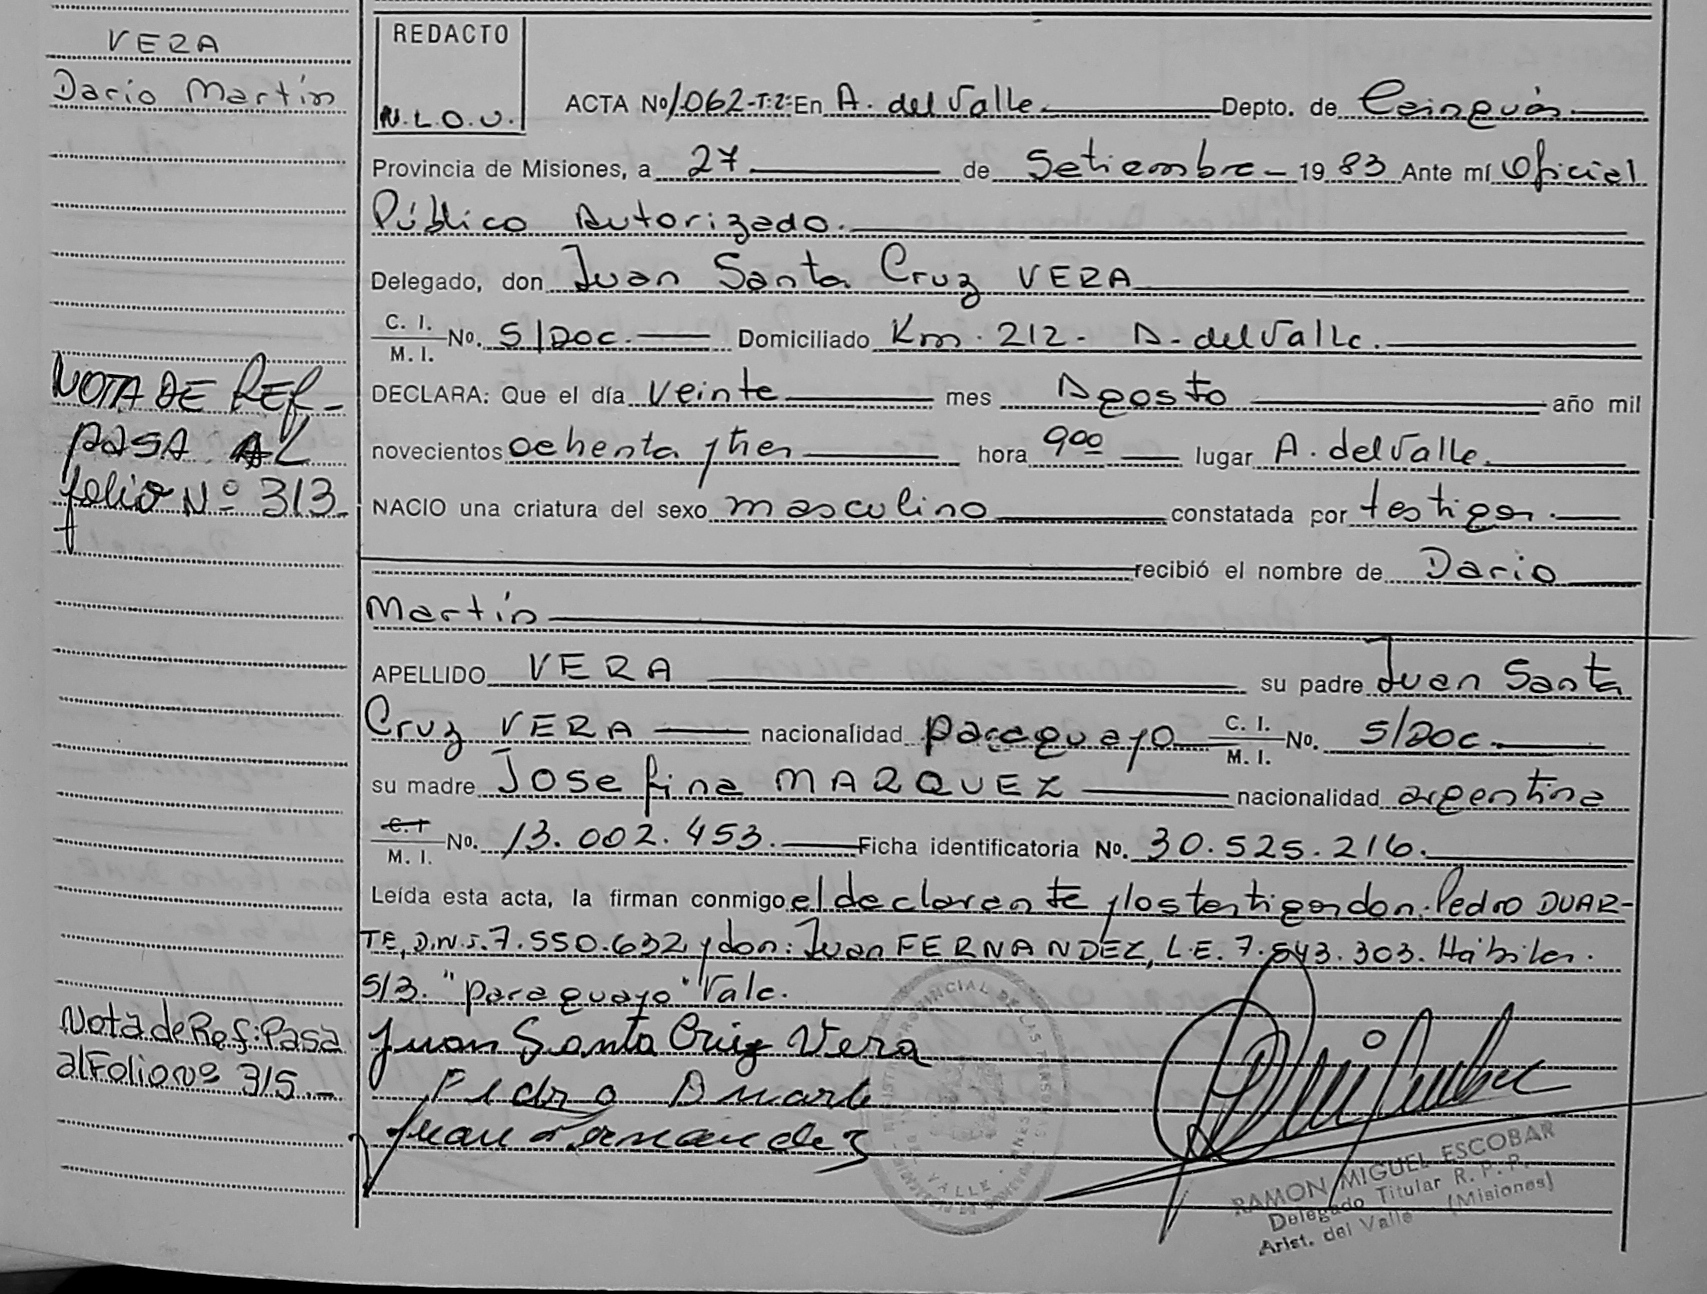 VERA
Dario Martín
NOTA DE REF-
PASA AL
folio Nº 313
Nota de Ref: Pasa
al Folio nº 315.-
REDACTO
N.L.O.V.
ACTA Nº 1.062-T:2: En A. del Valle Depto. de Cainguás
Provincia de Misiones, a 27 de Setiembre - 1983 Ante mí Oficial
Público Autorizado.
Delegado, don Juan Santa Cruz VERA
C. I. / M. I. No. S/Doc. Domiciliado Km. 212 - A. del Valle.
DECLARA: Que el día veinte mes Agosto año mil
novecientos ochenta y tres hora 9 00 lugar A. del Valle
NACIO una criatura del sexo masculino constatada por testigos.
recibió el nombre de Dario
Martín
APELLIDO VERA su padre Juan Santa
Cruz VERA nacionalidad paraguayo C. I. / M. I. No. S/Doc.
su madre Josefina MARQUEZ nacionalidad argentina
C. I / M. I. No. 13.002.453. Ficha identificatoria No. 30.525.216.
Leída esta acta, la firman conmigo el declarante y los testigos don: Pedro DUAR-
TE, D.N.I. 7.550.632 y don: Juan FERNANDEZ, L.E. 7.543.303. Hábiles.
S/B. "paraguayo" Vale.
Juan Santa Cruz Vera
Pedro Duarte
Juan Fernandez
RAMON MIGUEL ESCOBAR
Delegado Titular R. P. P.
Arist. del Valle (Misiones)